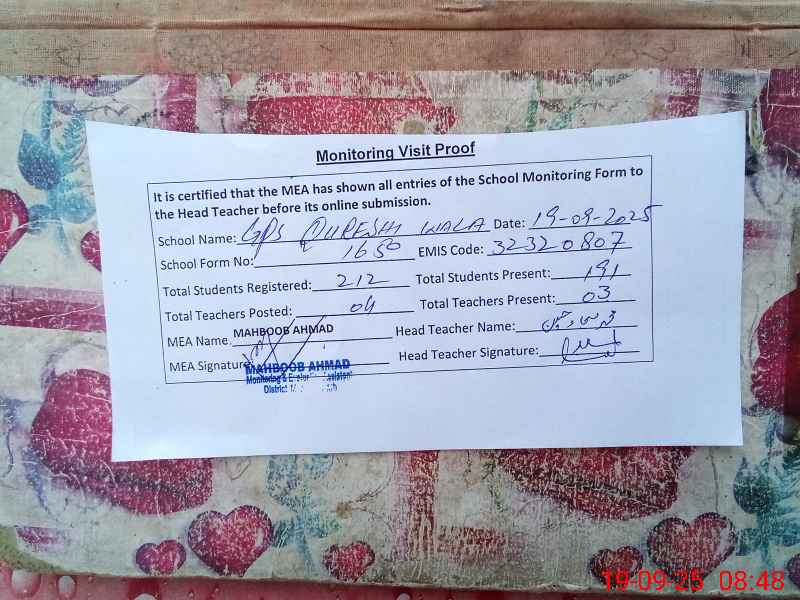 Monitoring Visit Proof
It is certified that the MEA has shown all entries of the School Monitoring Form to
the Head Teacher before its online submission.
School Name: GPS QURESHI WALA Date: 19-09-2025
School Form No: 1650 EMIS Code: 32320807
Total Students Registered: 212 Total Students Present: 191
Total Teachers Posted: 04 Total Teachers Present: 03
MEA Name. MAHBOOB AHMAD Head Teacher Name:
MEA Signature: Head Teacher Signature:
MAHBOOB AHMAD
Monitoring &
District
19-09-25 08:48